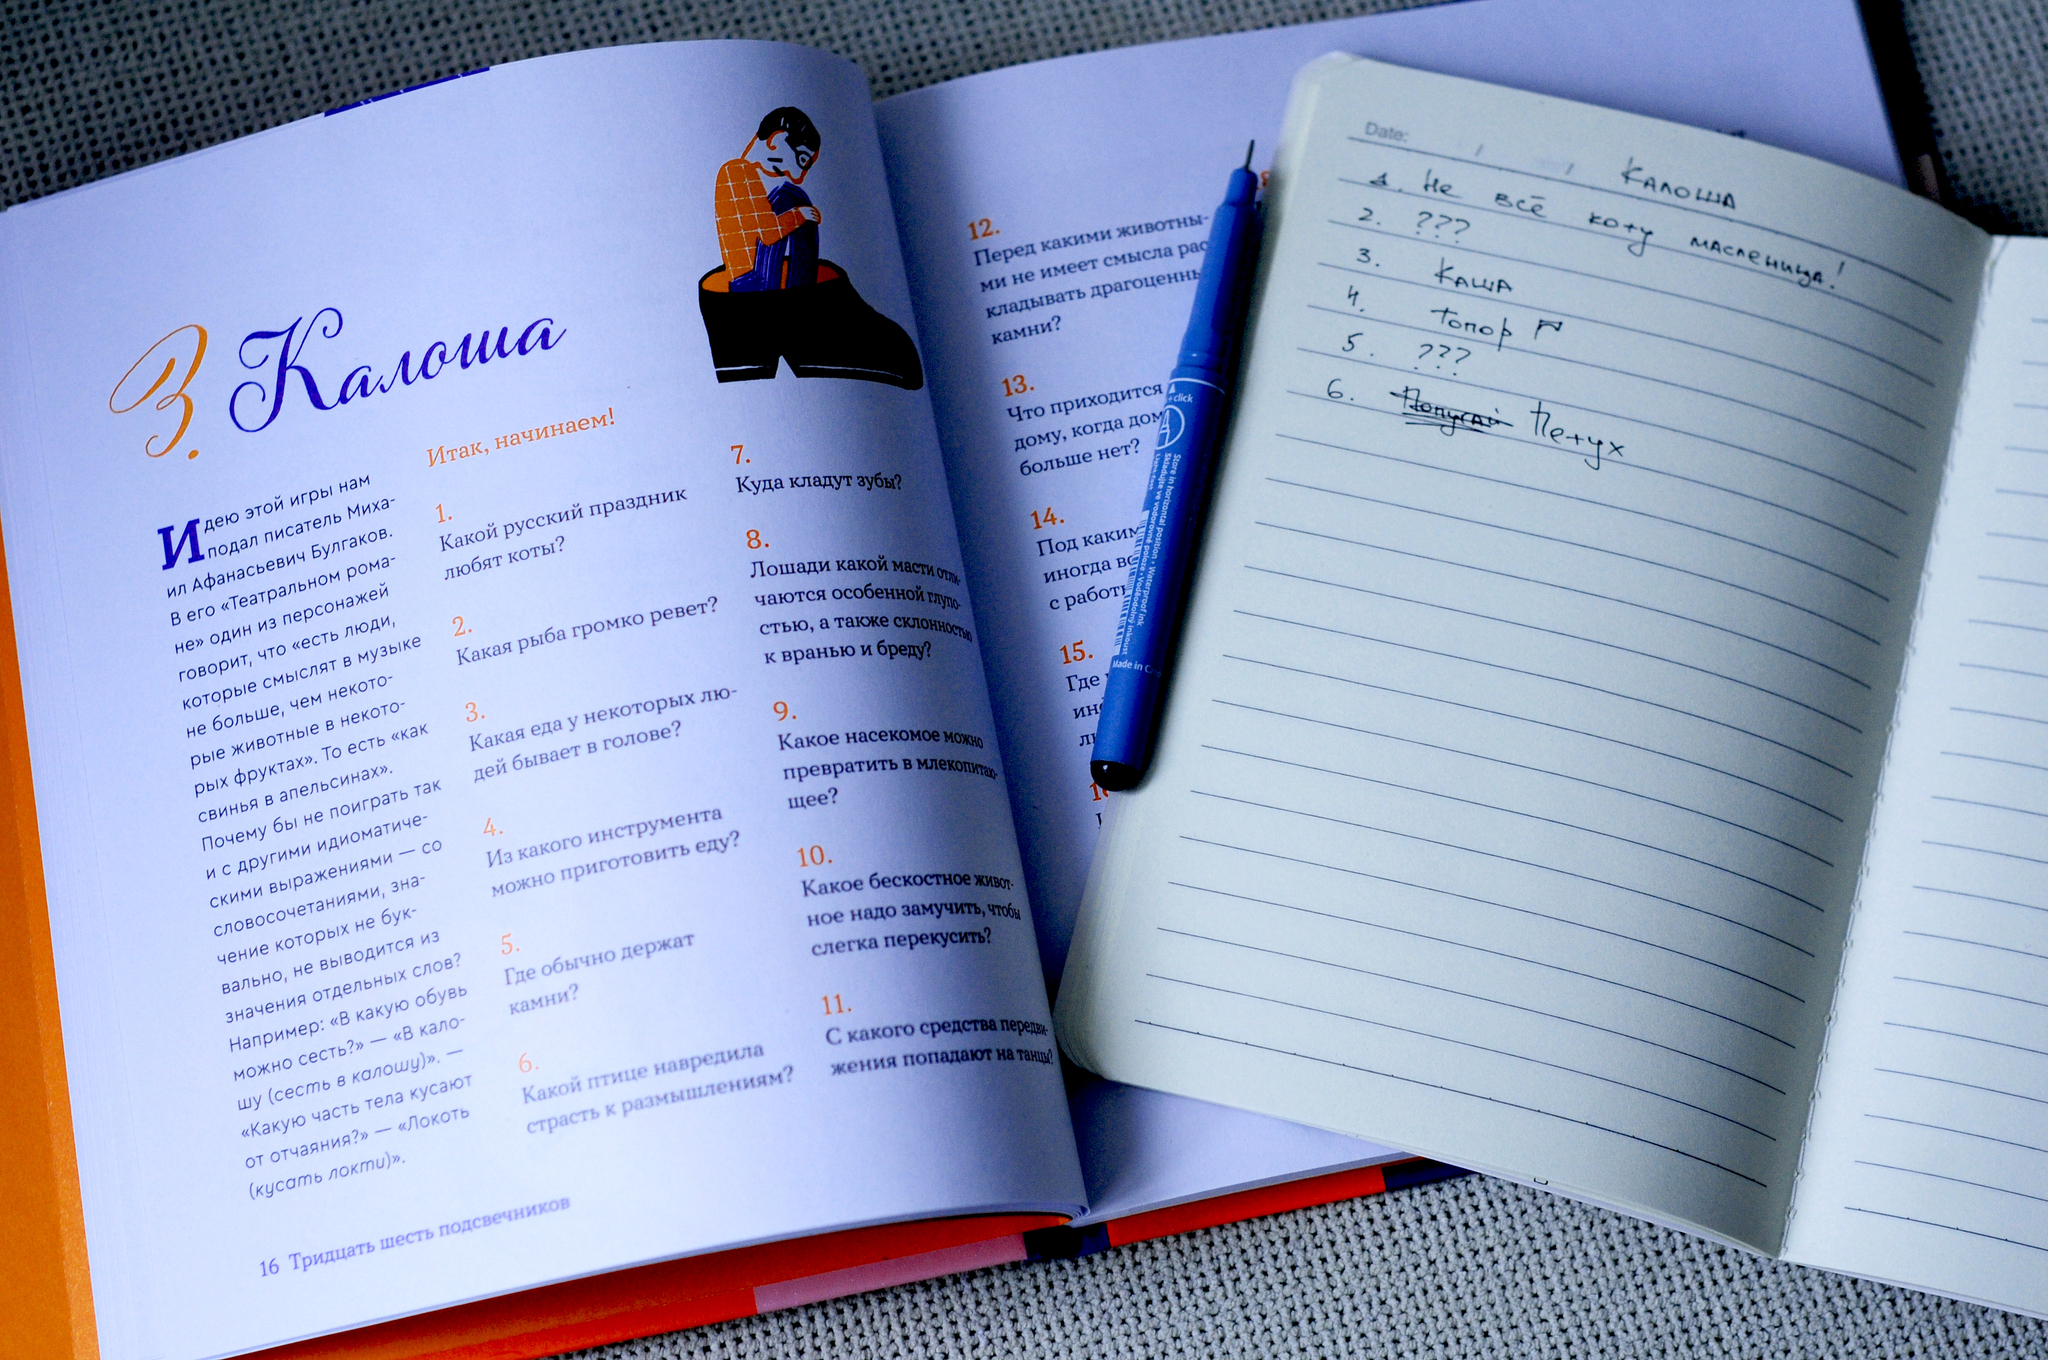 3. Калоша
Идею этой игры нам
подал писатель Миха-
ил Афанасьевич Булгаков.
В его «Театральном рома-
не» один из персонажей
говорит, что «есть люди,
которые смыслят в музыке
не больше, чем некото-
рые животные в некото-
рых фруктах». То есть «как
свинья в апельсинах».
Почему бы не поиграть так
и с другими идиоматиче-
скими выражениями — со
словосочетаниями, зна-
чение которых не бук-
вально, не выводится из
значения отдельных слов?
Например: «В какую обувь
можно сесть?» — «В кало-
шу (сесть в калошу)». —
«Какую часть тела кусают
от отчаяния?» — «Локоть
(кусать локти)».
Итак, начинаем!
1.
Какой русский праздник
любят коты?
2.
Какая рыба громко ревет?
3.
Какая еда у некоторых лю-
дей бывает в голове?
4.
Из какого инструмента
можно приготовить еду?
5.
Где обычно держат
камни?
6.
Какой птице навредила
страсть к размышлениям?
7.
Куда кладут зубы?
8.
Лошади какой масти отли-
чаются особенной глупо-
стью, а также склонностью
к вранью и бреду?
9.
Какое насекомое можно
превратить в млекопитаю-
щее?
10.
Какое бескостное живот-
ное надо замучить, чтобы
слегка перекусить?
11.
С какого средства передви-
жения попадают на танцы?
16 Тридцать шесть подсвечников
12.
Перед какими животны-
ми не имеет смысла рас
кладывать драгоценны
камни?
13.
Что приходится
дому, когда дом
больше нет?
14.
Под каким
иногда
с работ
15.
Где
+ click
Store in horizontal position • Waterproof ink
Made in
Date: / /
Калоша
1. Не всё коту масленица!
2. ???
3. Каша
4. Топор
5. ???
6. Попугай Петух